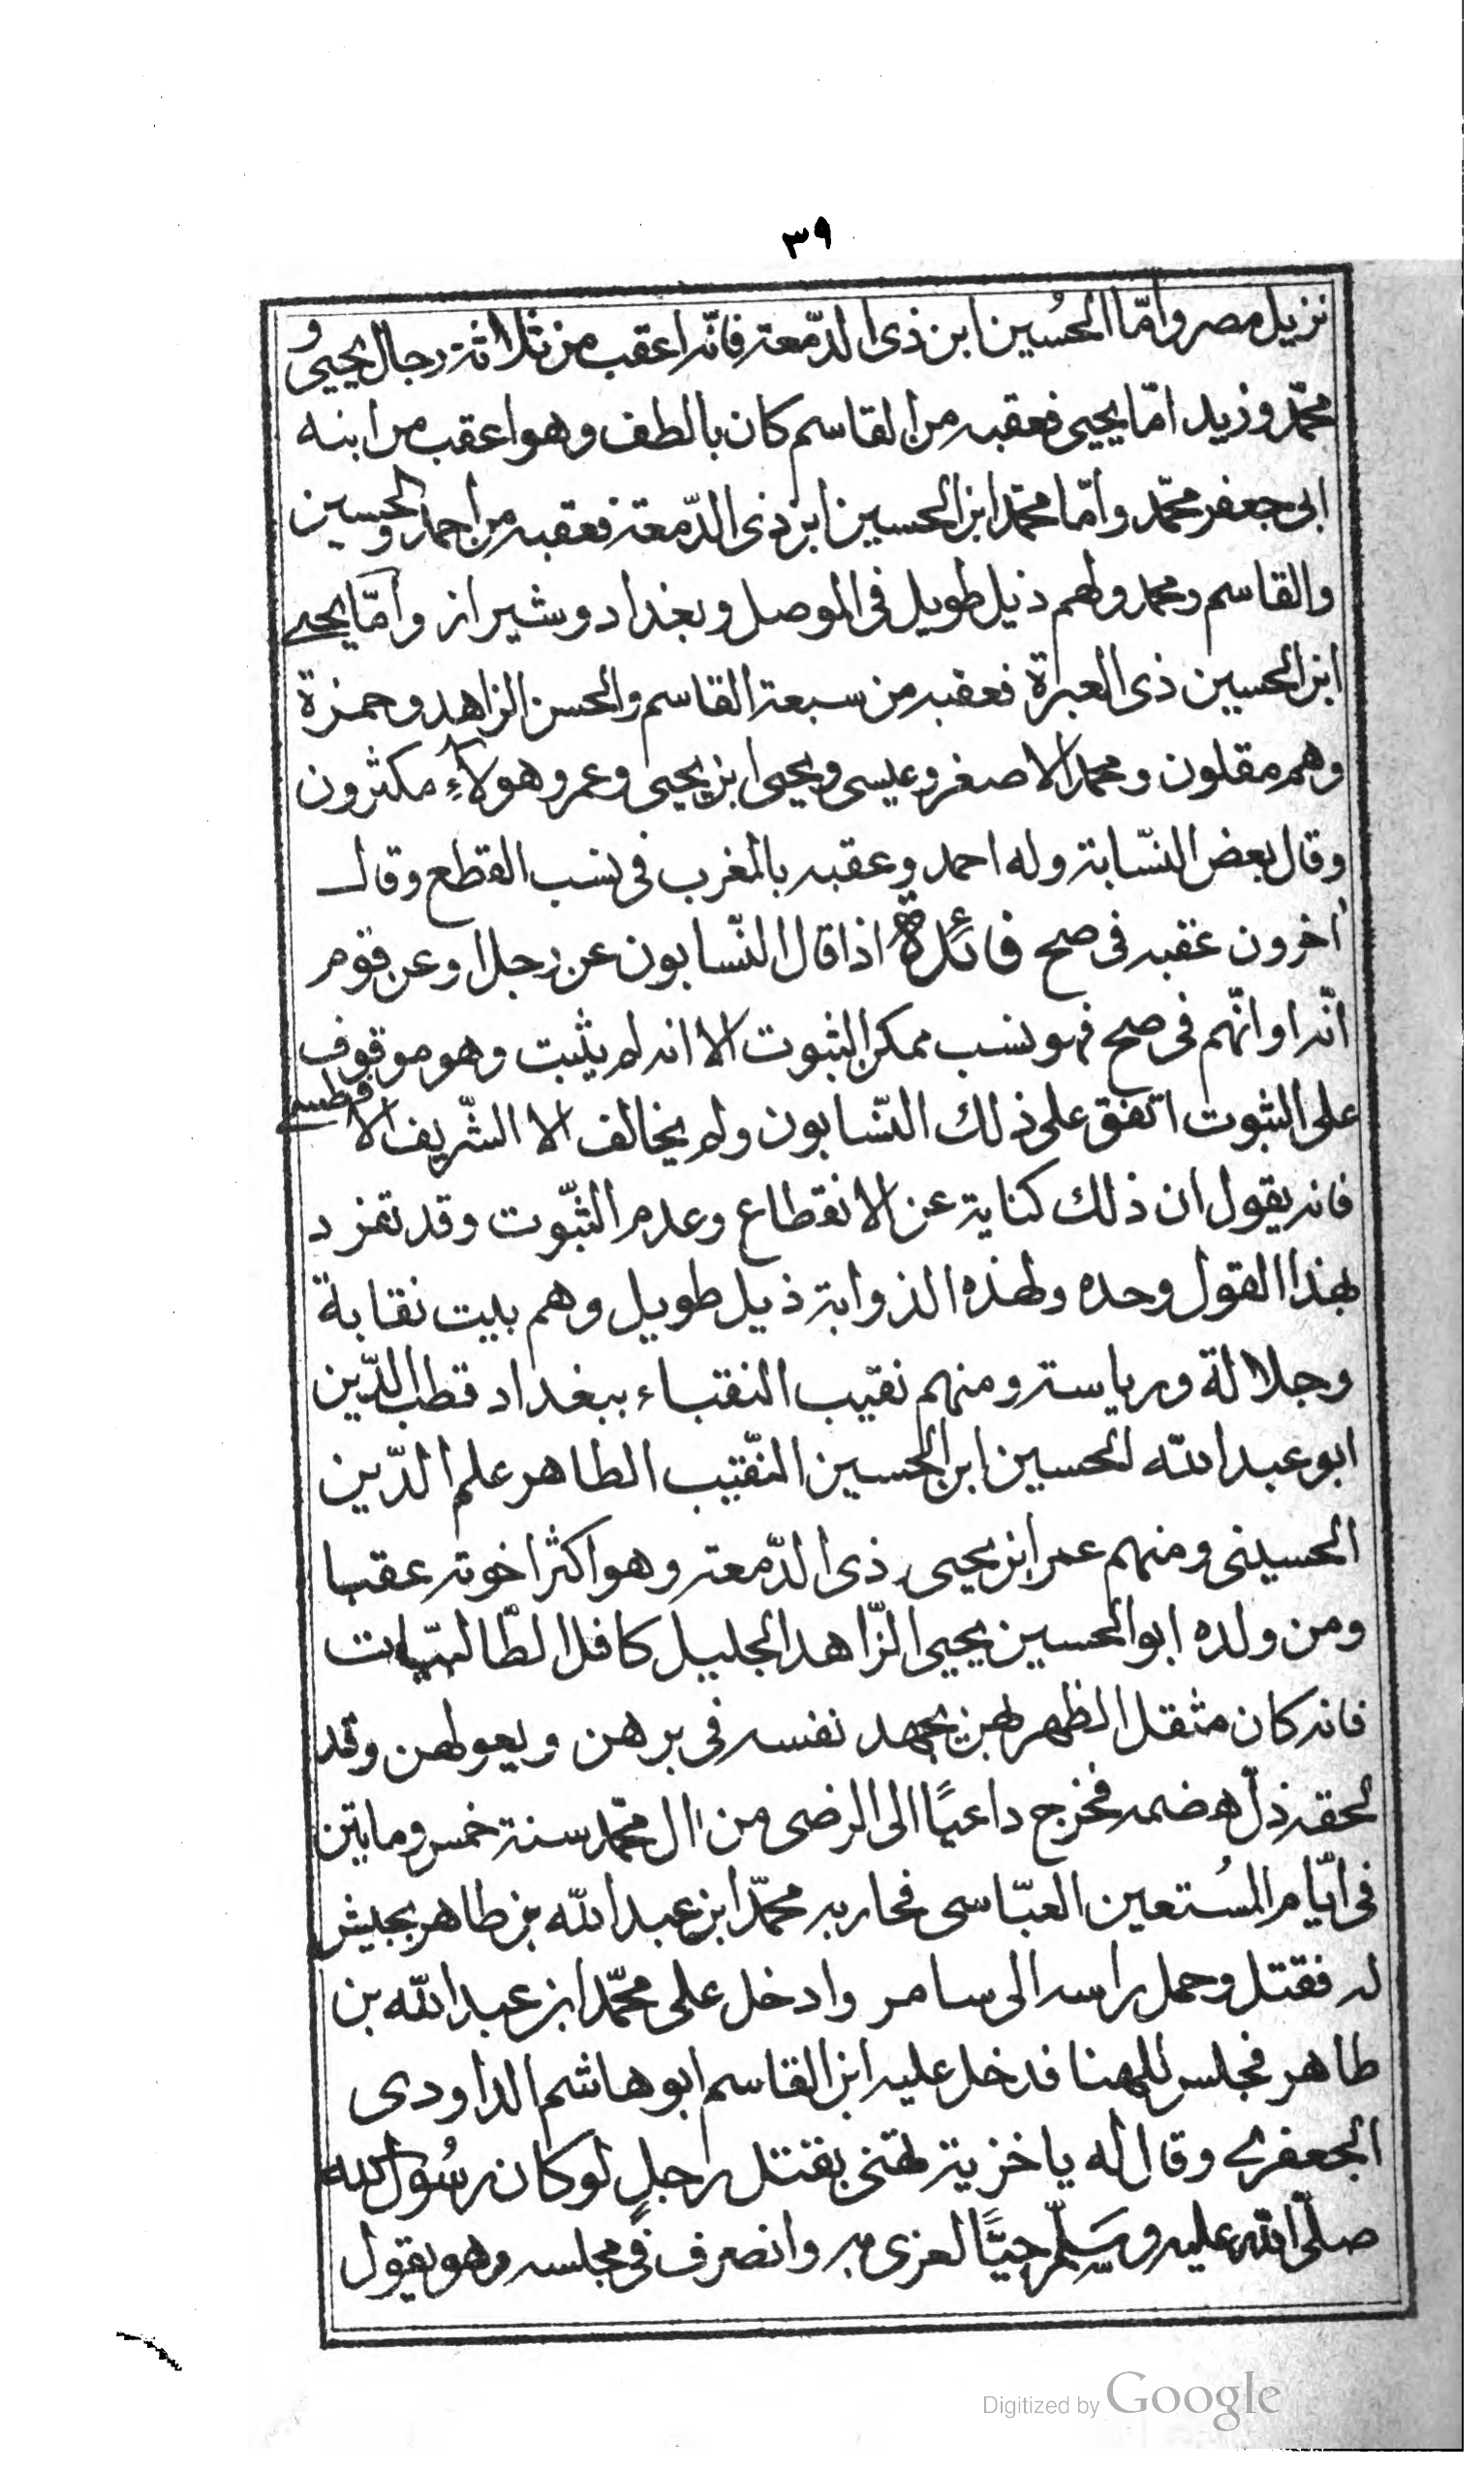 ٣٩
نزيل مصر وامّا الحُسين ابن ذى الدّمعة فانّه اعقب من ثلاثة رجال يحيى و
محمّد وزيد امّا يحيى فعقبه من القاسم كان بالطف وهو اعقب من ابنه
ابى جعفر محمّد وامّا محمّد ابن الحسين ابن ذى الدّمعة فعقبه من احمد والحسين
والقاسم ومحمد ولهم ذيل طويل فى الموصل وبغداد وشيراز وامّا يحيى
ابن الحسين ذى العبرة فعقبه من سبعة القاسم والحسن الزاهد وحمزة
وهم مقلون ومحمد الاصغر وعيسى ويحيى ابن يحيى وعمر وهولاءِ مكثرون
وقال بعض النسّابة وله احمد وعقبه بالمغرب فى نسب القطع وقال
اخرون عقبه فى صح فائدة اذا قال النّسابون عن رجل او عن قوم
انّه او انّهم فى صح فهو نسب ممكن الثبوت الا انه لم يثبت وهو موقوف
على الثبوت اتفق على ذلك النّسابون ولم يخالف الا الشّريف الاقطسى
فانه يقول ان ذلك كناية عن الانقطاع وعدم الثبّوت وقد تفرد
بهذا القول وحده ولهذه الذوابة ذيل طويل وهم بيت نقابة
وجلالة ورياسة ومنهم نقيب النقباء ببغداد قطب الدّين
ابو عبد الله الحسين ابن الحسين النّقيب الطاهر علم الدّين
الحسينى ومنهم عمر ابن يحيى ذى الدّمعة وهو اكثر اخوته عقبا
ومن ولده ابو الحسين يحيى الزّاهد الجليل كافل الطّالبيّات
فانه كان مثقل الظهر لهن يجهد نفسه فى برهن ويعولهن وقد
لحقه ذلّ هضمه فخرج داعيًا الى الرضى من ال محمّد سنة خمس وماتين
فى ايّام المُستعين العبّاسى فحاربه محمّد ابن عبد الله بن طاهر بجيش
له فقتل وحمل راسه الى سامر وادخل على محمّد ابن عبد الله بن
طاهر فجلس للهنا فدخل عليه ابن القاسم ابو هاشم الداودى
الجعفرى وقال له يا خزية تهنى بقتل رجلٍ لو كان رسُول الله
صلّى الله عليه وسَلّم حيًّا لعزى به وانصرف فى مجلسه وهو يقول
Digitized by Google